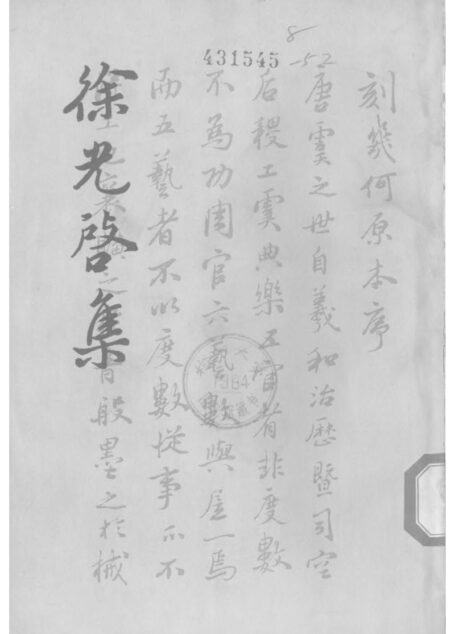 8
-52
431545
刻幾何原本序
唐虞之世自羲和治歷暨司空
后稷工虞典樂五官者非度數
不為功周官六藝數與居一焉
而五藝者不以度數從事亦不
音般墨之於械
徐光啓集
1984